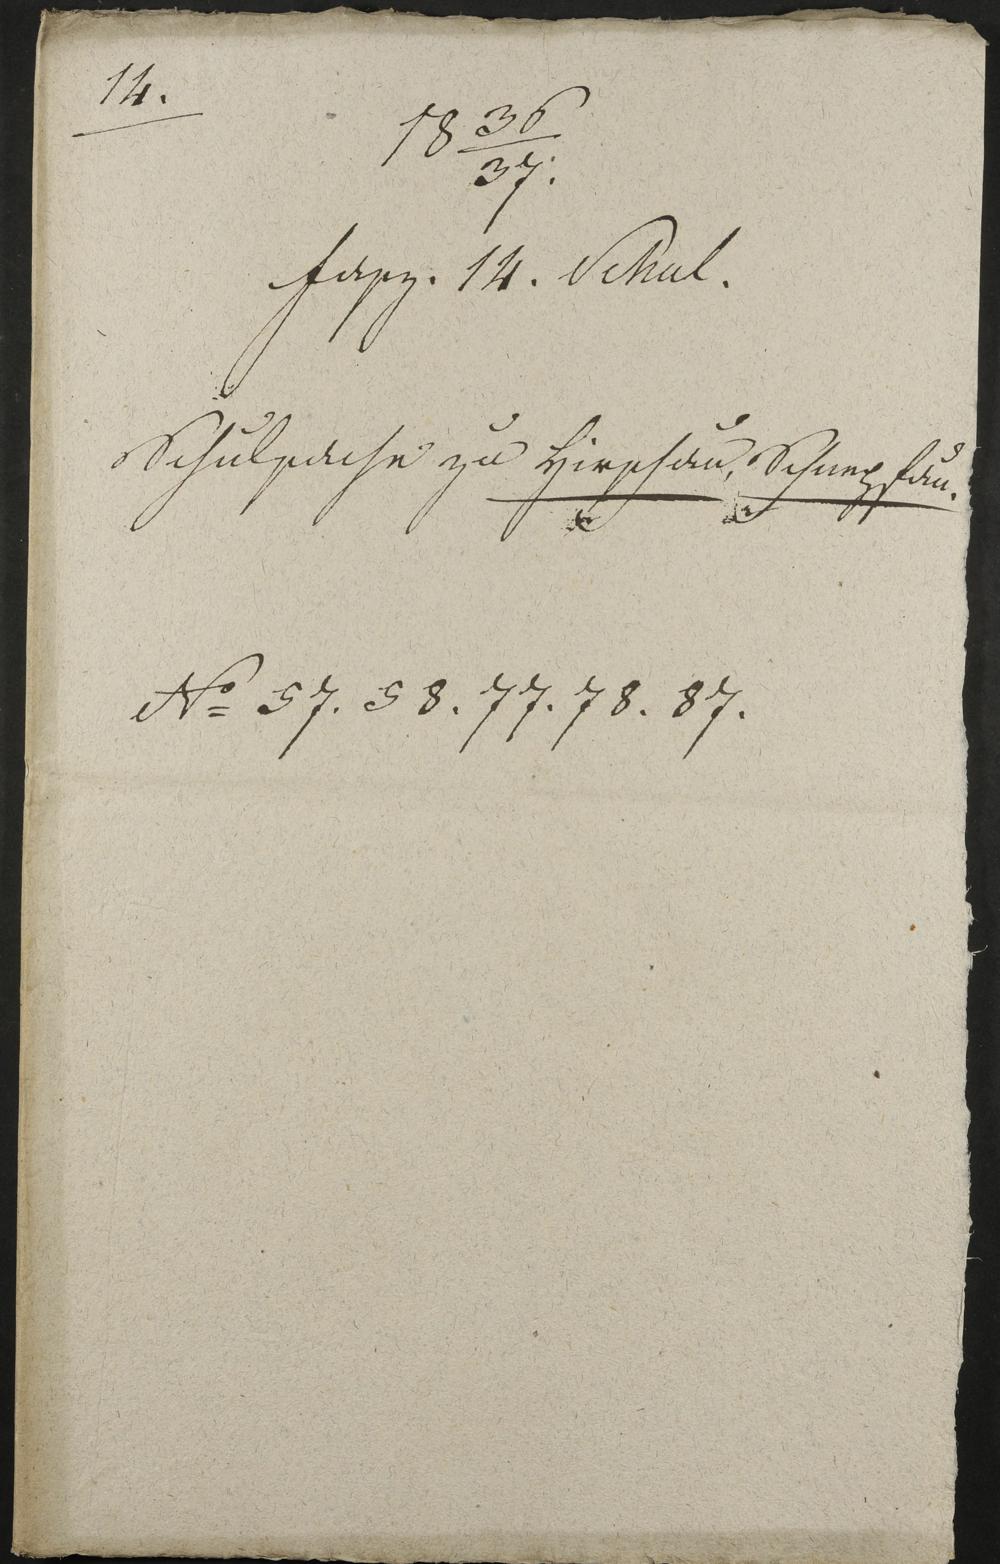 14.
18 36/37.
Fasz. 14. Schul.
Schulsache zu Hirschau, Schnepfau.
No 57. 58. 77. 78. 87.